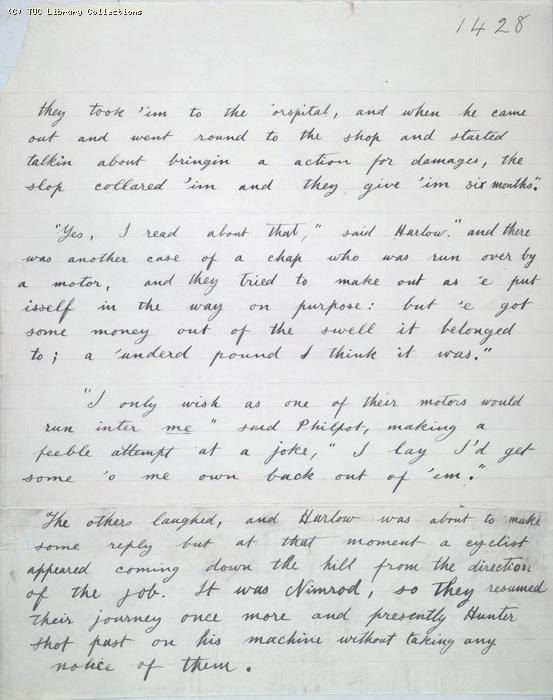 (C) TUC Library Collections
1428
they took 'im to the 'orspital, and when he came
out and went round to the shop and started
talkin about bringin a action for damages, the
slop collared 'im and they give 'im six months".
"Yes, I read about that," said Harlow." and there
was another case of a chap who was run over by
a motor, and they tried to make out as 'e put
isself in the way on purpose: but 'e got
some money out of the swell it belonged
to; a 'underd pound I think it was."
"I only wish as one of their motors would
run inter me" said Philpot, making a
feeble attempt at a joke, "I lay I'd get
some 'o me own back out of 'em."
The others laughed, and Harlow was about to make
some reply but at that moment a cyclist
appeared coming down the hill from the direction
of the job. It was Nimrod, so they resumed
their journey once more and presently Hunter
shot past on his machine without taking any
notice of them.